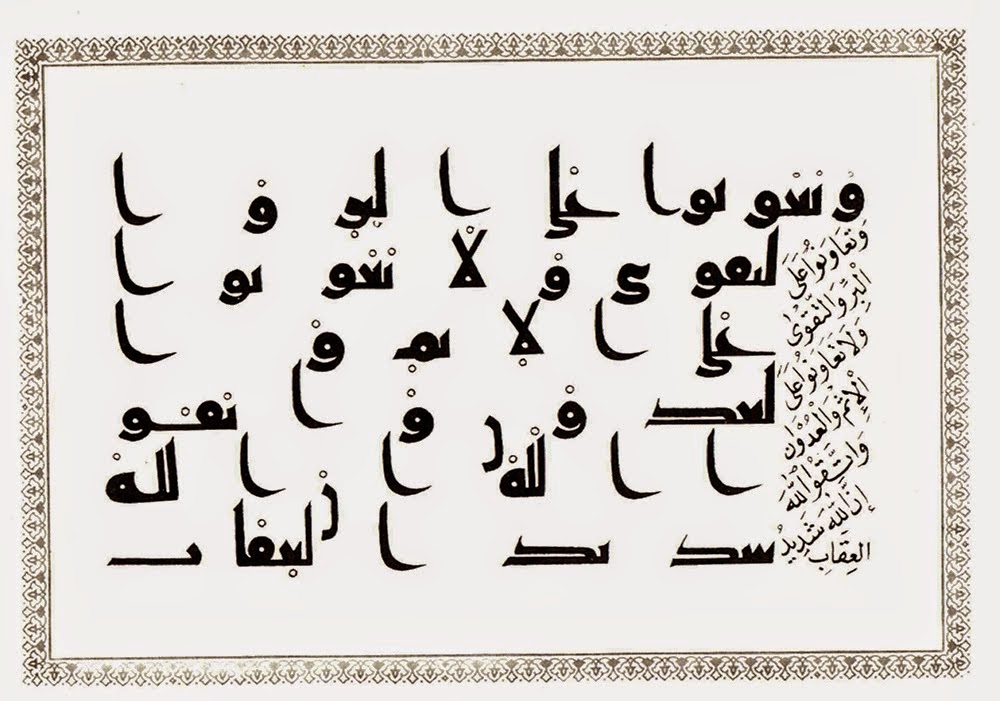 وتعونوا على البر وا
لتقوى ولا تعونوا
على الاثم وا
لعدون واتقو
ا الله ان الله
شديد العقاب
وَتَعَاوَنُوا عَلَى
الْبِرِّ وَالتَّقْوَىٰ
وَلَا تَعَاوَنُوا عَلَى
الْإِثْمِ وَالْعُدْوَٰنِ
وَاتَّقُوا اللَّهَ
إِنَّ اللَّهَ شَدِيدُ
الْعِقَابِ